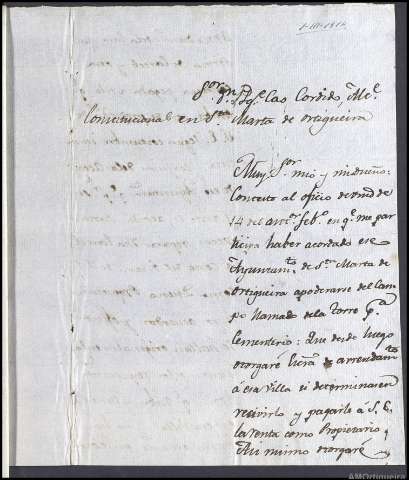 Sor. Dn. Jph. Cao Cordido, Alce.
Constitucional en Sta. Marta de Ortigueira
Muy Sor. mio y mi dueño:
Contexto al oficio de vmd de
14 del antor. febo. en qe. me par
ticipa haber acordado ese
Ayuntamto. de Sta. Marta de
Ortigueira apoderarse del Cam
po llamado dela Torre pa.
Cementerio: Que desde luego
otorgaré de arrendamto.
á esa Villa si determinasen
recivirlo y pagarle á S. E.
la renta como Propietario,
Asi mismo otorgaré
AMOrtigueira